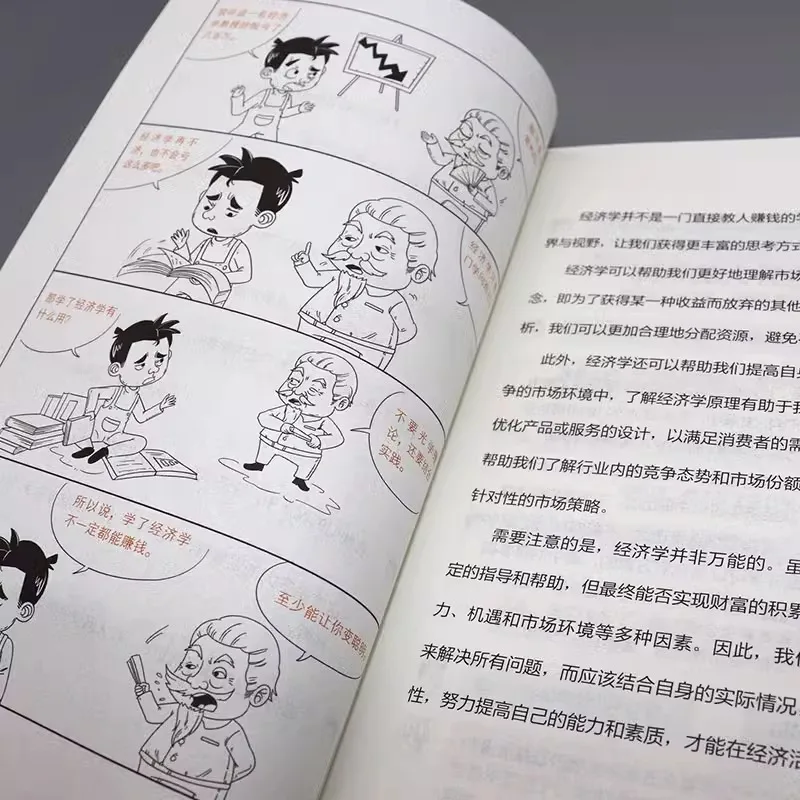 一名经济
学教授炒股亏了
经济学再不
济，也不会亏
这么多吧。
经济学
那学了经济学有
什么用？
不要光学
论，还要结合
实践。
所以说，学了经济学
不一定都能赚钱。
至少能让你变聪明
经济学并不是一门直接教人赚钱的
界与视野，让我们获得更丰富的思考方式
经济学可以帮助我们更好地理解市场
念，即为了获得某一种收益而放弃的其他
析，我们可以更加合理地分配资源，避免
此外，经济学还可以帮助我们提高自
争的市场环境中，了解经济学原理有助于
优化产品或服务的设计，以满足消费者的需
帮助我们了解行业内的竞争态势和市场份额
针对性的市场策略。
需要注意的是，经济学并非万能的。虽
定的指导和帮助，但最终能否实现财富的积累
力、机遇和市场环境等多种因素。因此，我
来解决所有问题，而应该结合自身的实际情况
性，努力提高自己的能力和素质，才能在经济活